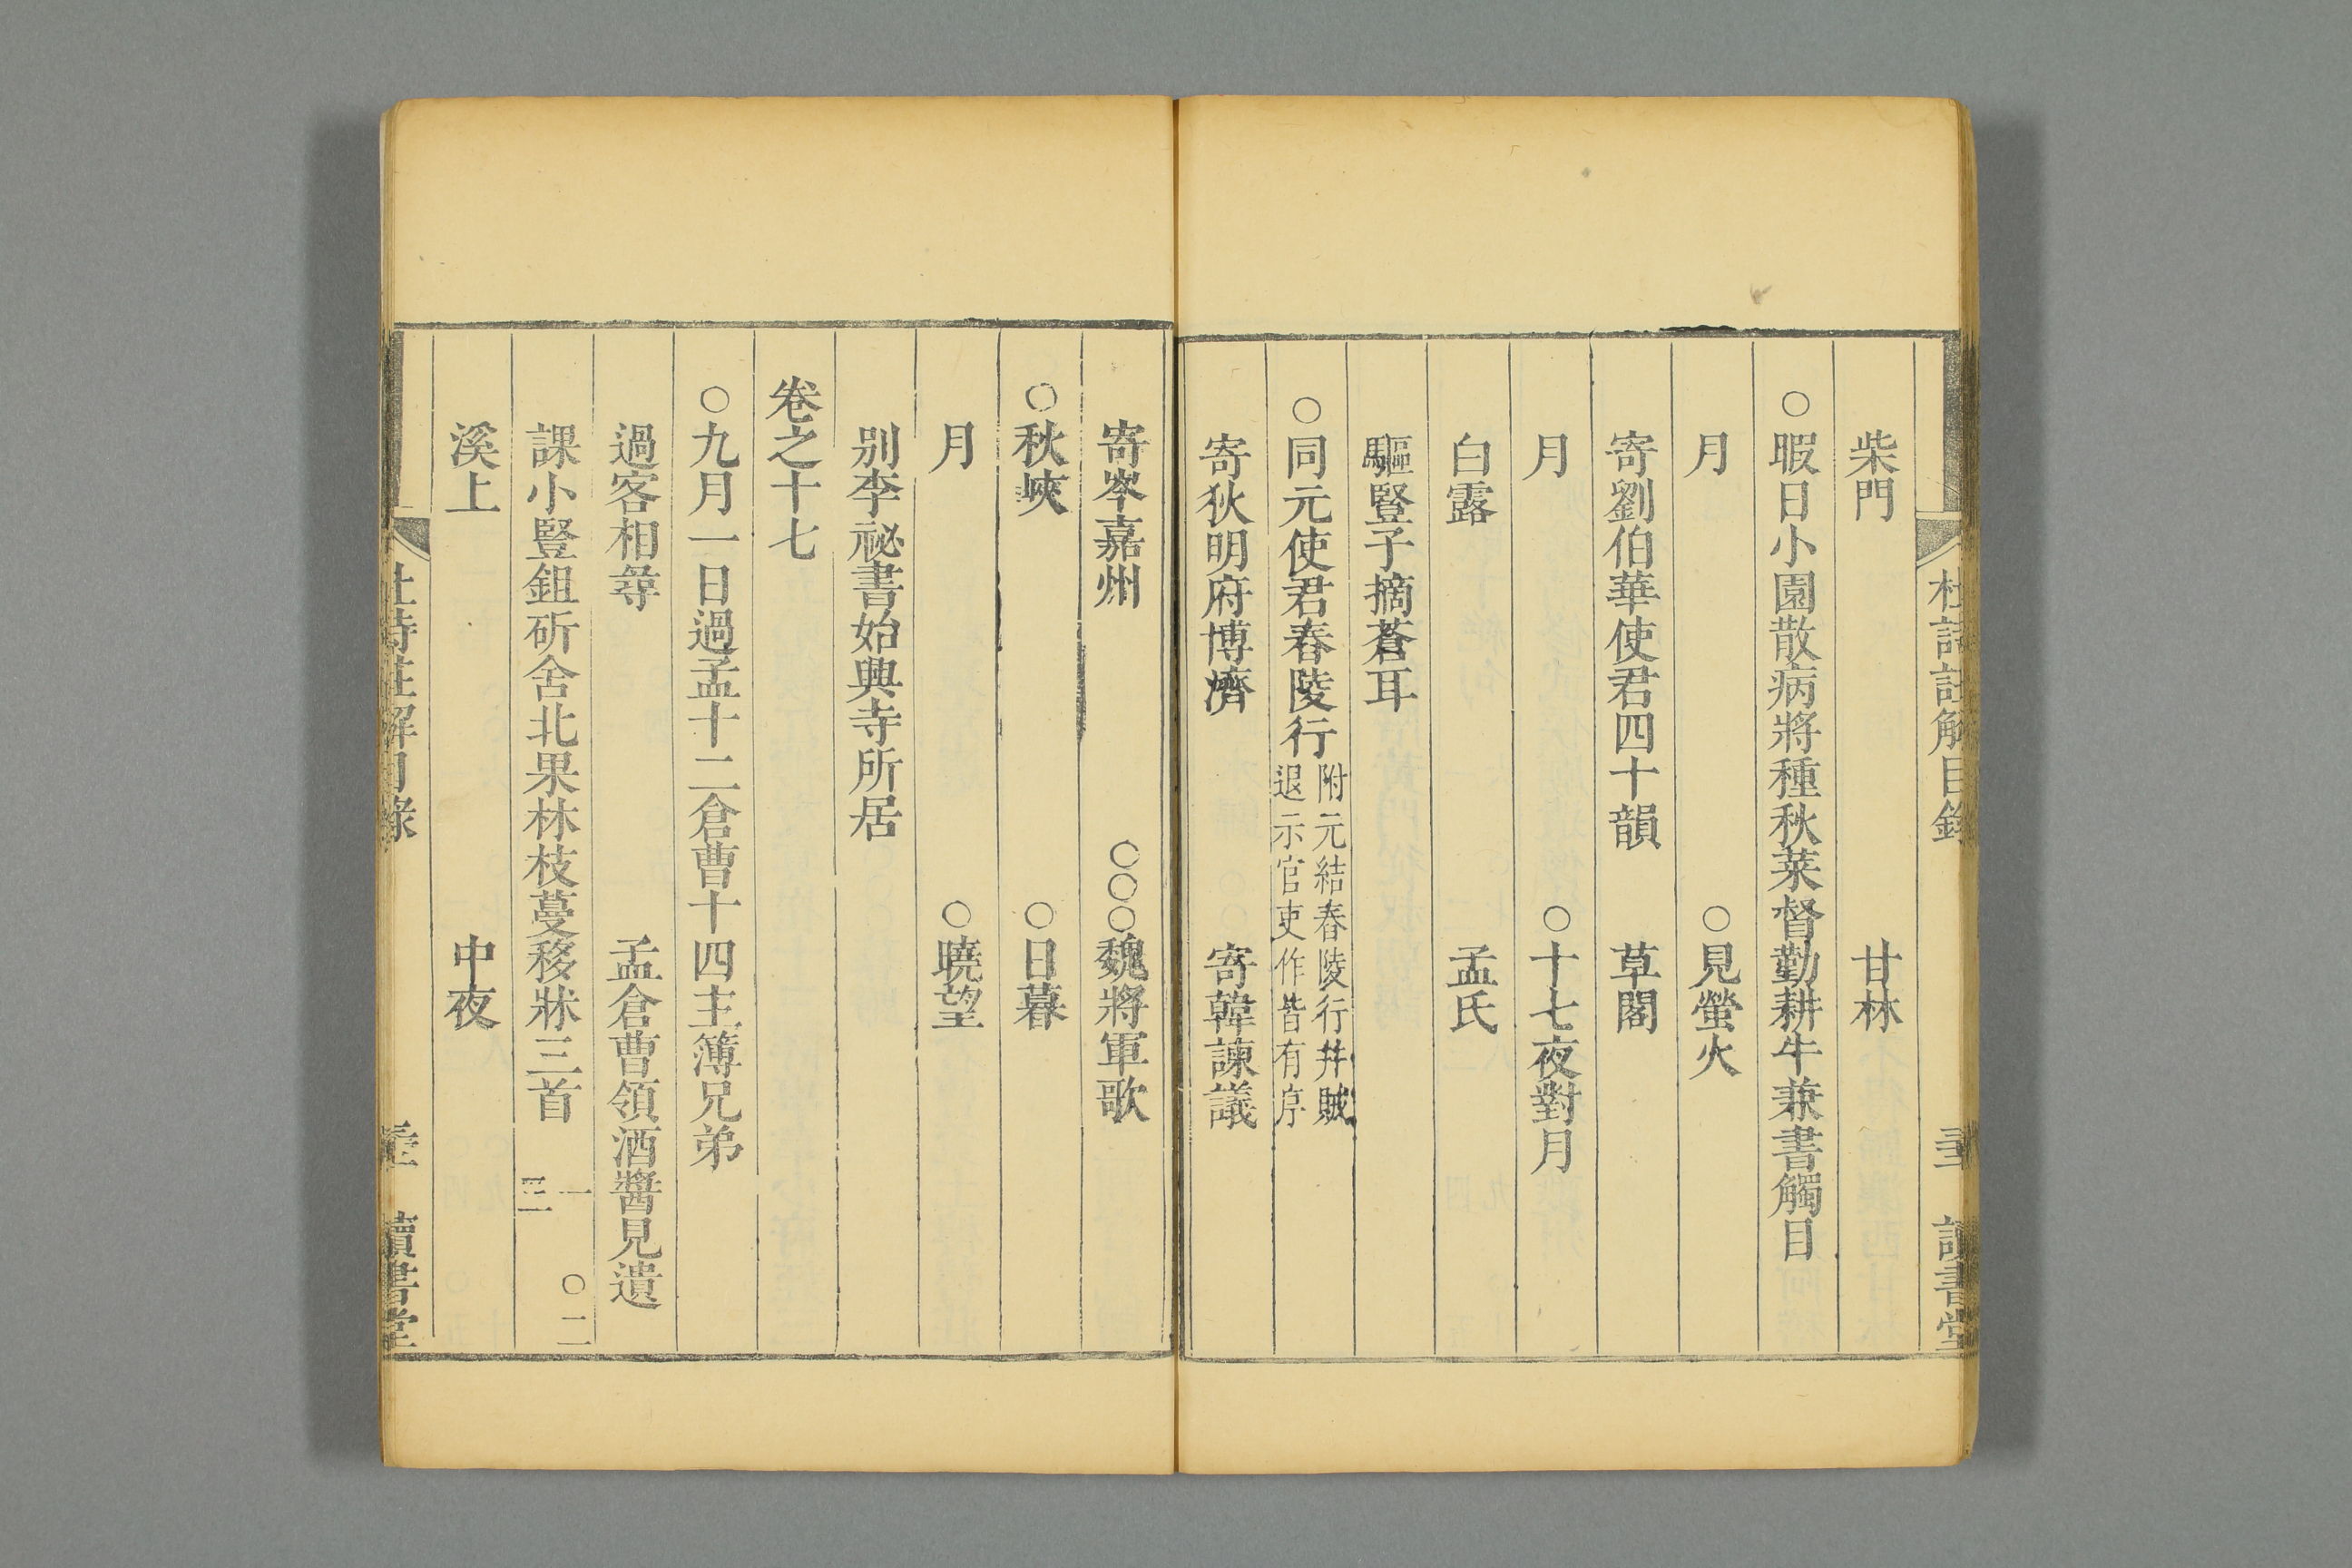 杜詩註解目錄 讀書堂
柴門 甘林
○暇日小園散病將種秋菜督勤耕牛兼書觸目
月 ○見螢火
寄劉伯華使君四十韻 草閣
月 ○十七夜對月
白露 孟氏
驅豎子摘蒼耳
○同元使君舂陵行 附元結舂陵行并賊
退示官吏作皆有序
寄狄明府博濟 寄韓諫議
寄岑嘉州 ○○○魏將軍歌
○秋峽 ○日暮
月 ○曉望
別李祕書始興寺所居
卷之十七
○九月一日過孟十二倉曹十四主簿兄弟
過客相尋 孟倉曹領酒醬見遺
課小豎鉏斫舍北果林枝蔓移牀三首 一 ○二
三
溪上 中夜
杜詩註解目錄 讀書堂